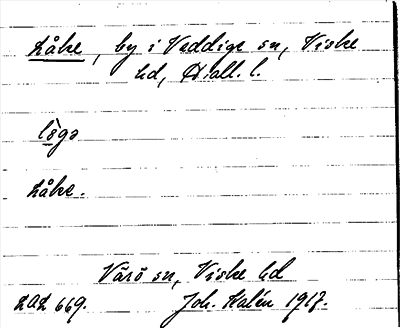 Låke, by i Veddige sn, Viske
hd, Hall. l.
lògə
Låke.
Värö sn, Viske hd
LAL 669. Joh. Kalén 1917.